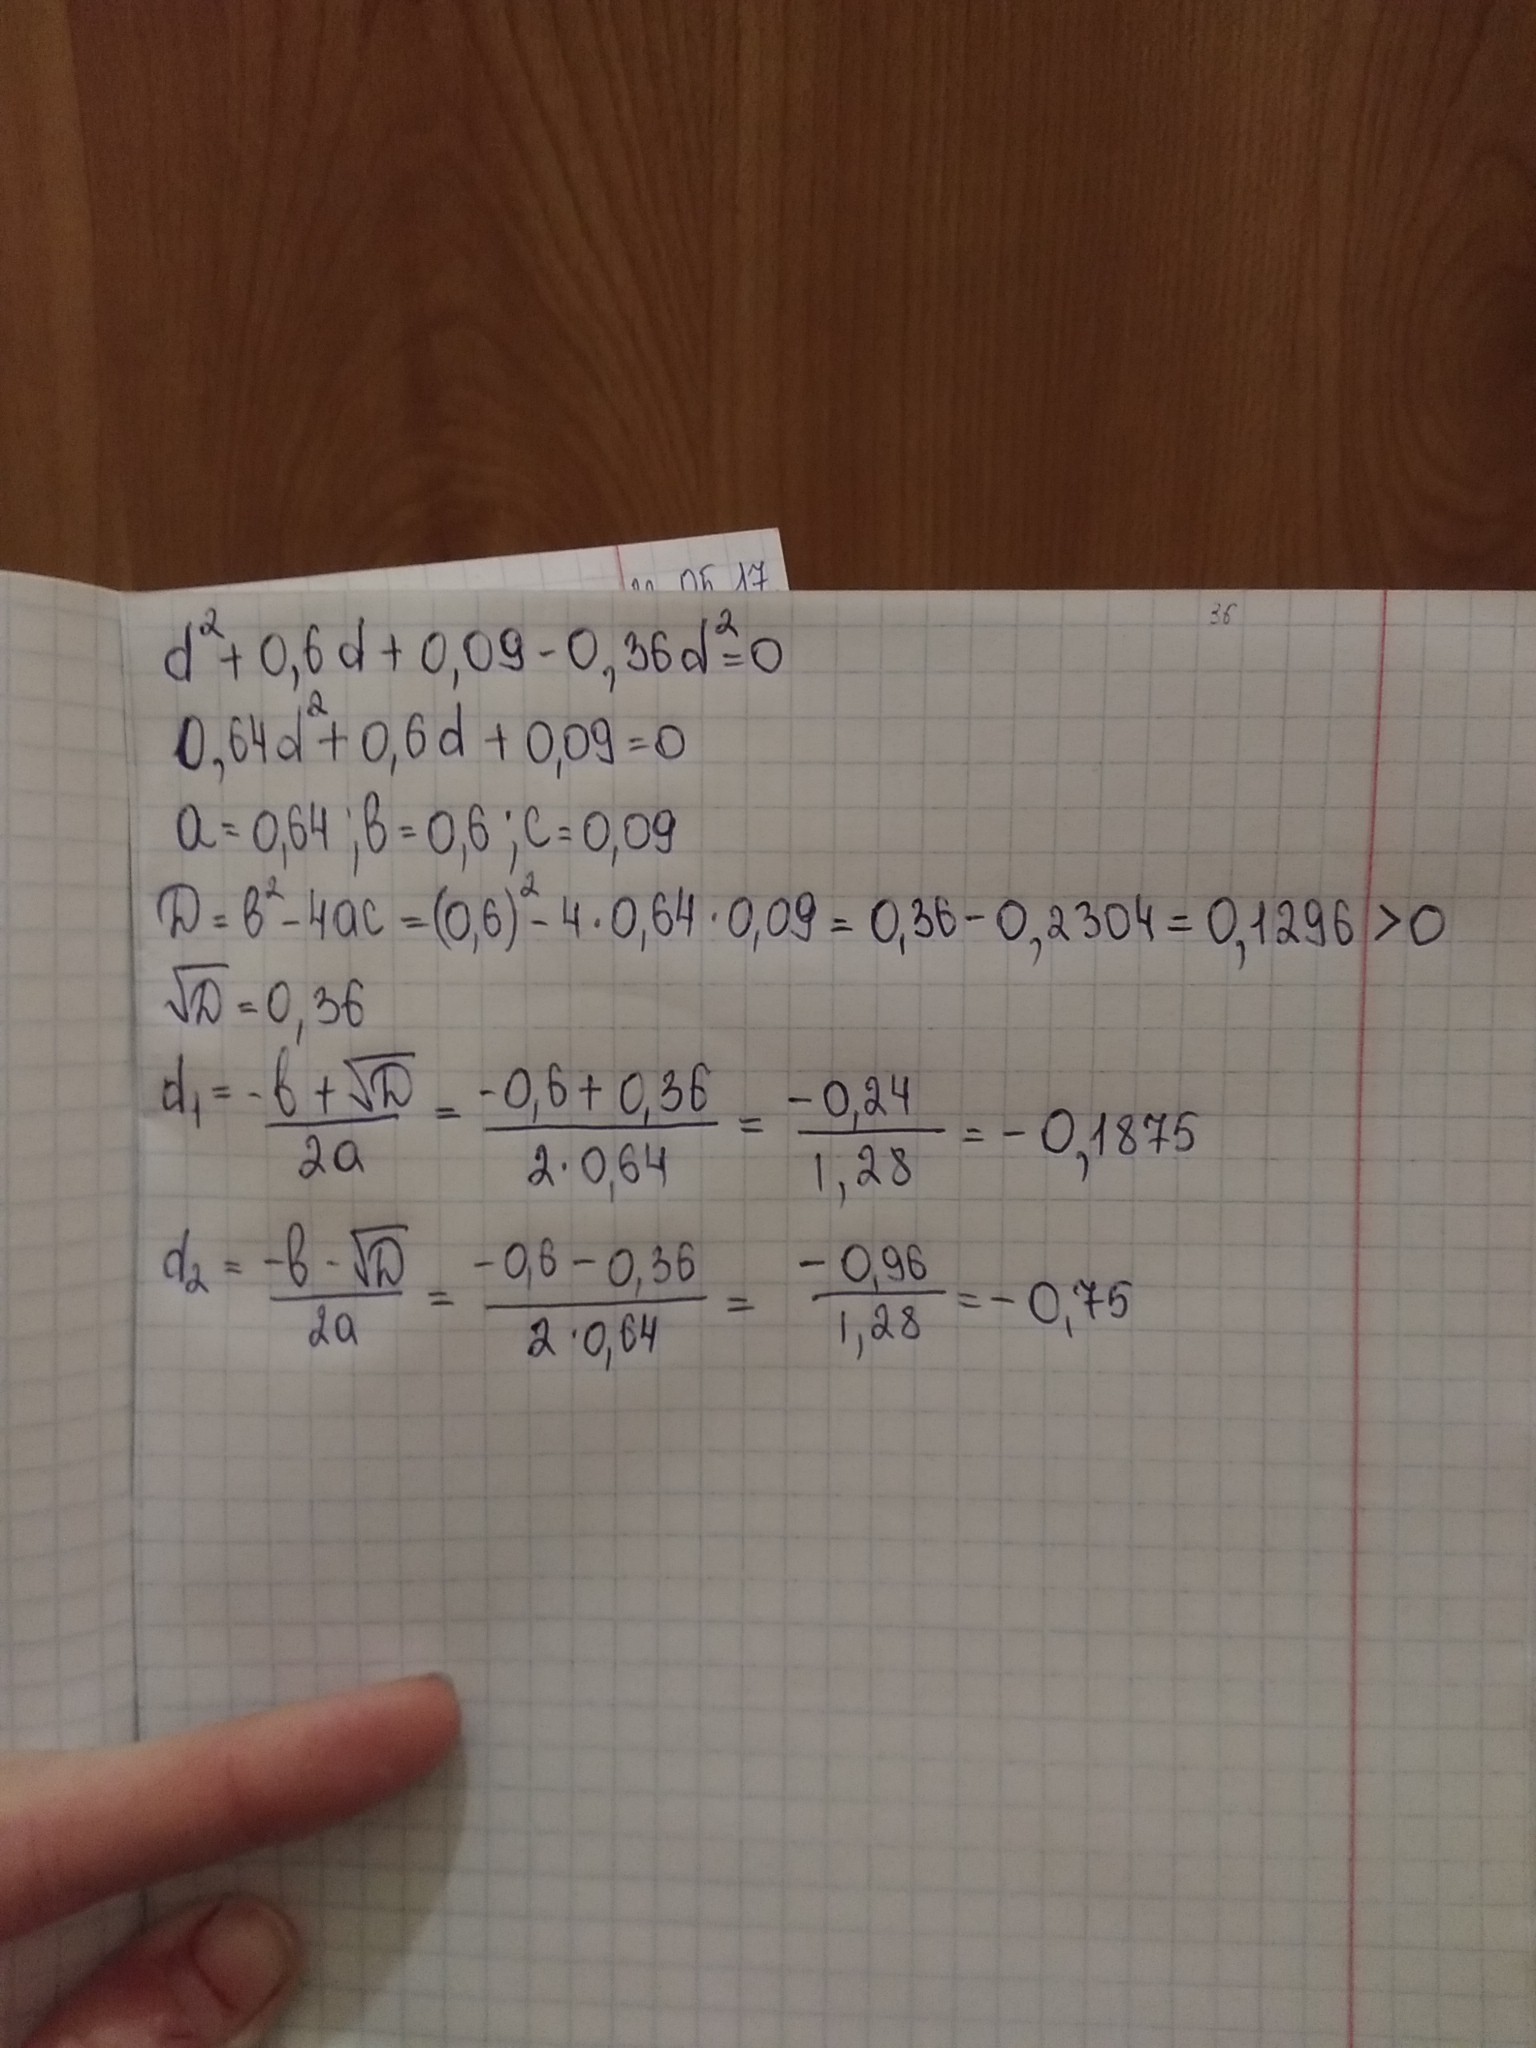 05 17
36
d²+0,6d+0,09-0,36d²=0
0,64d²+0,6d+0,09=0
a=0,64;в=0,6;c=0,09
D=в²-4ac=(0,6)²-4·0,64·0,09=0,36-0,2304=0,1296>0
√D=0,36
d₁=-в+√D/2a=-0,6+0,36/2·0,64=-0,24/1,28=-0,1875
d₂=-в-√D/2a=-0,6-0,36/2·0,64=-0,96/1,28=-0,75